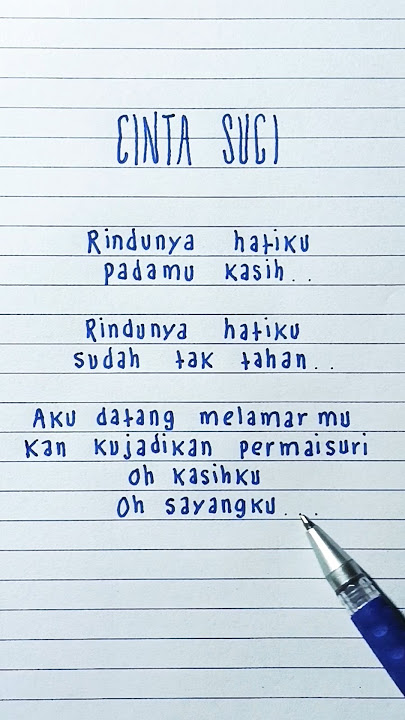 CINTA SUCI
Rindunya hatiku
padamu kasih..
Rindunya hatiku
sudah tak tahan..
Aku datang melamar mu
Kan kujadikan permaisuri
Oh kasihku
Oh sayangku...